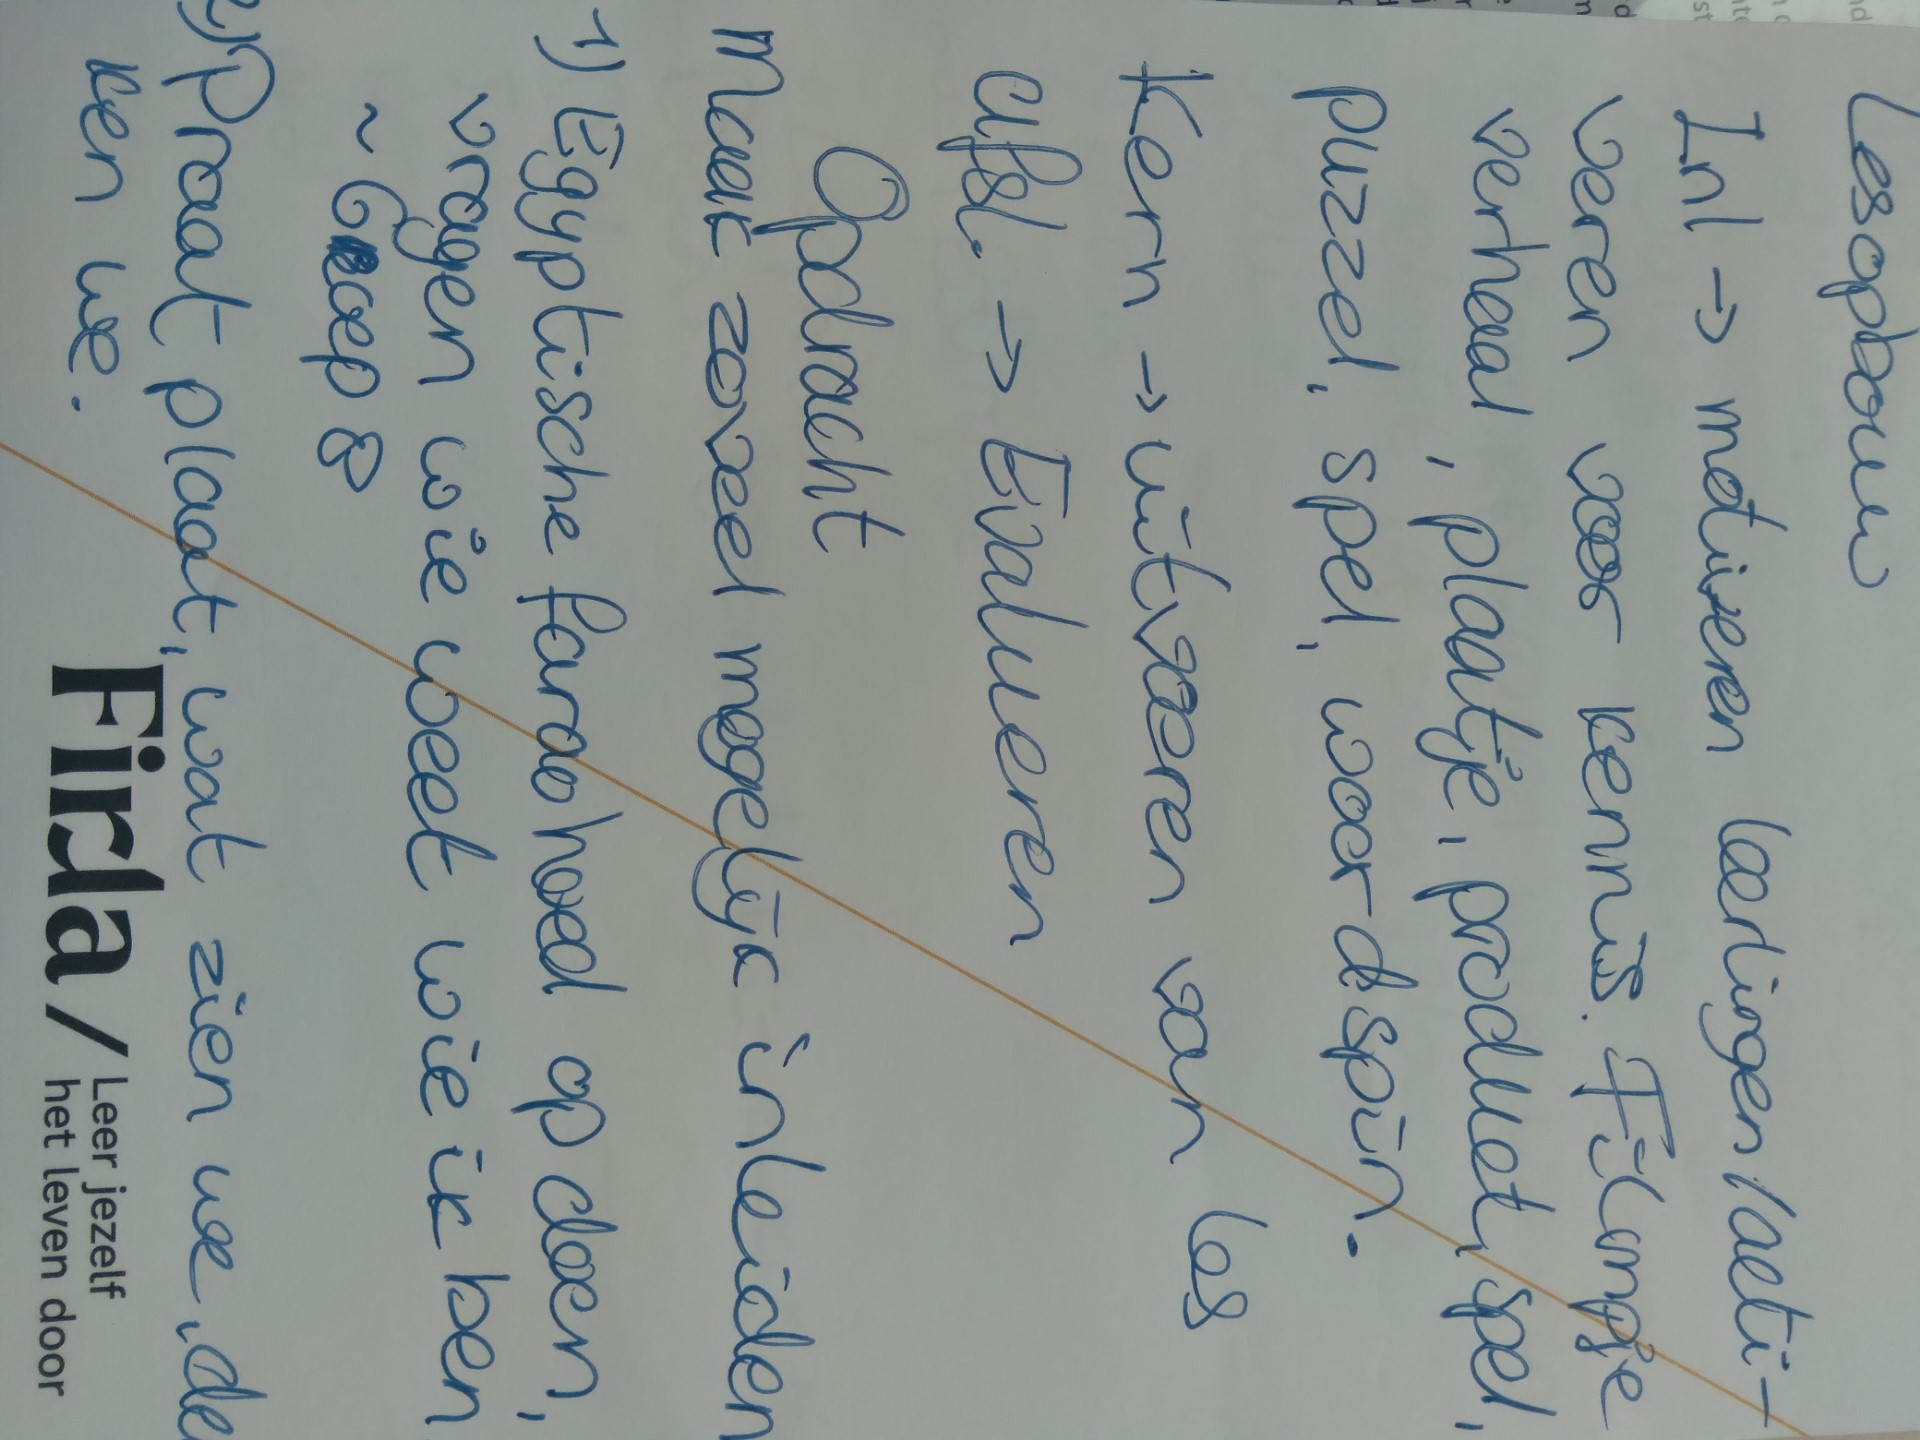 Lesopbouw
Inl → motiveren leerlingen / acti-
veren voor kennis. Filmpje
verhaal, plaatje, product, spel,
puzzel, spel, woordspin.
Kern → uitvoeren van les
afsl. → Evalueren
Opdracht
Maak zoveel mogelijk inleiden
1) Egyptische farao hoed op doen,
vragen wie weet wie ik ben
~ Groep 8
2) Praat plaat, wat zien we, de
ken we.
Firda / Leer jezelf
het leven door